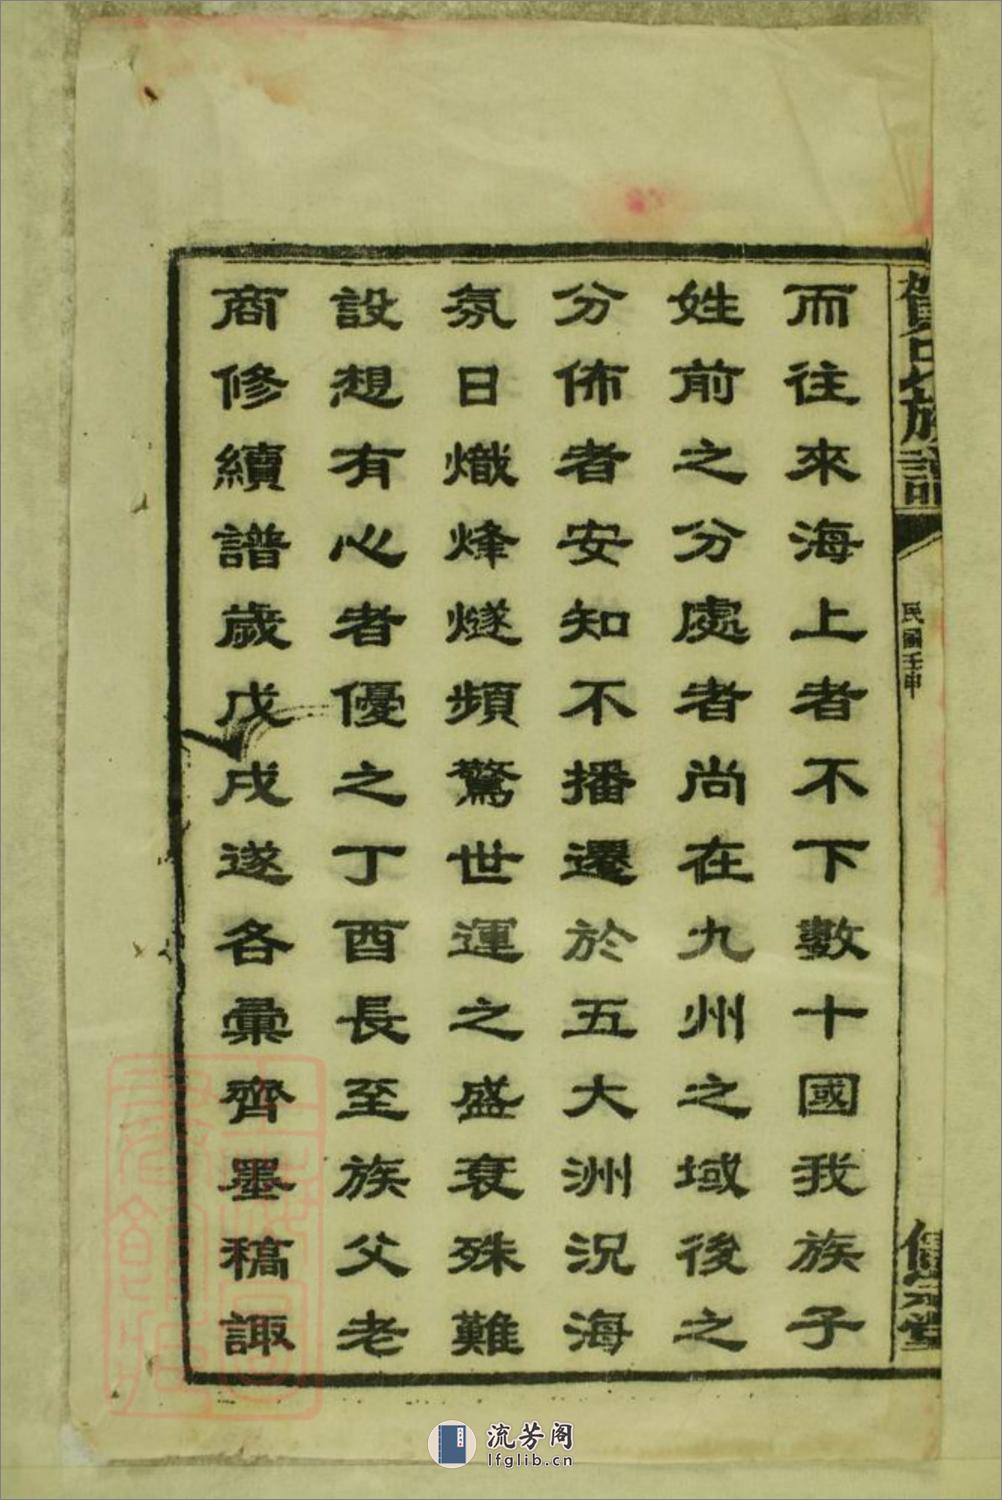 賀氏族譜
民國壬申
而往來海上者不下數十國我族子
姓前之分處者尚在九州之域後之
分佈者安知不播遷於五大洲況海
氛日熾烽燧頻驚世運之盛衰殊難
設想有心者優之丁酉長至族父老
商修續譜歲戊戌遂各彙齊墨稿諏
流芳阁
lfglib.cn